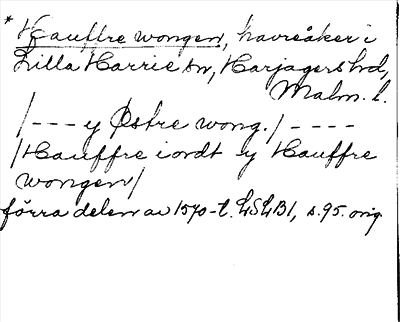 * Hauffre wongen, havreåker i
Lilla Harrie sn, Harjagers hd,
Malm. l.
/--- y Østre wong./ ----
/Hauffre iordt y Hauffre
wongen/
förra delen av 1570-t. LSLB1, s. 95. orig.